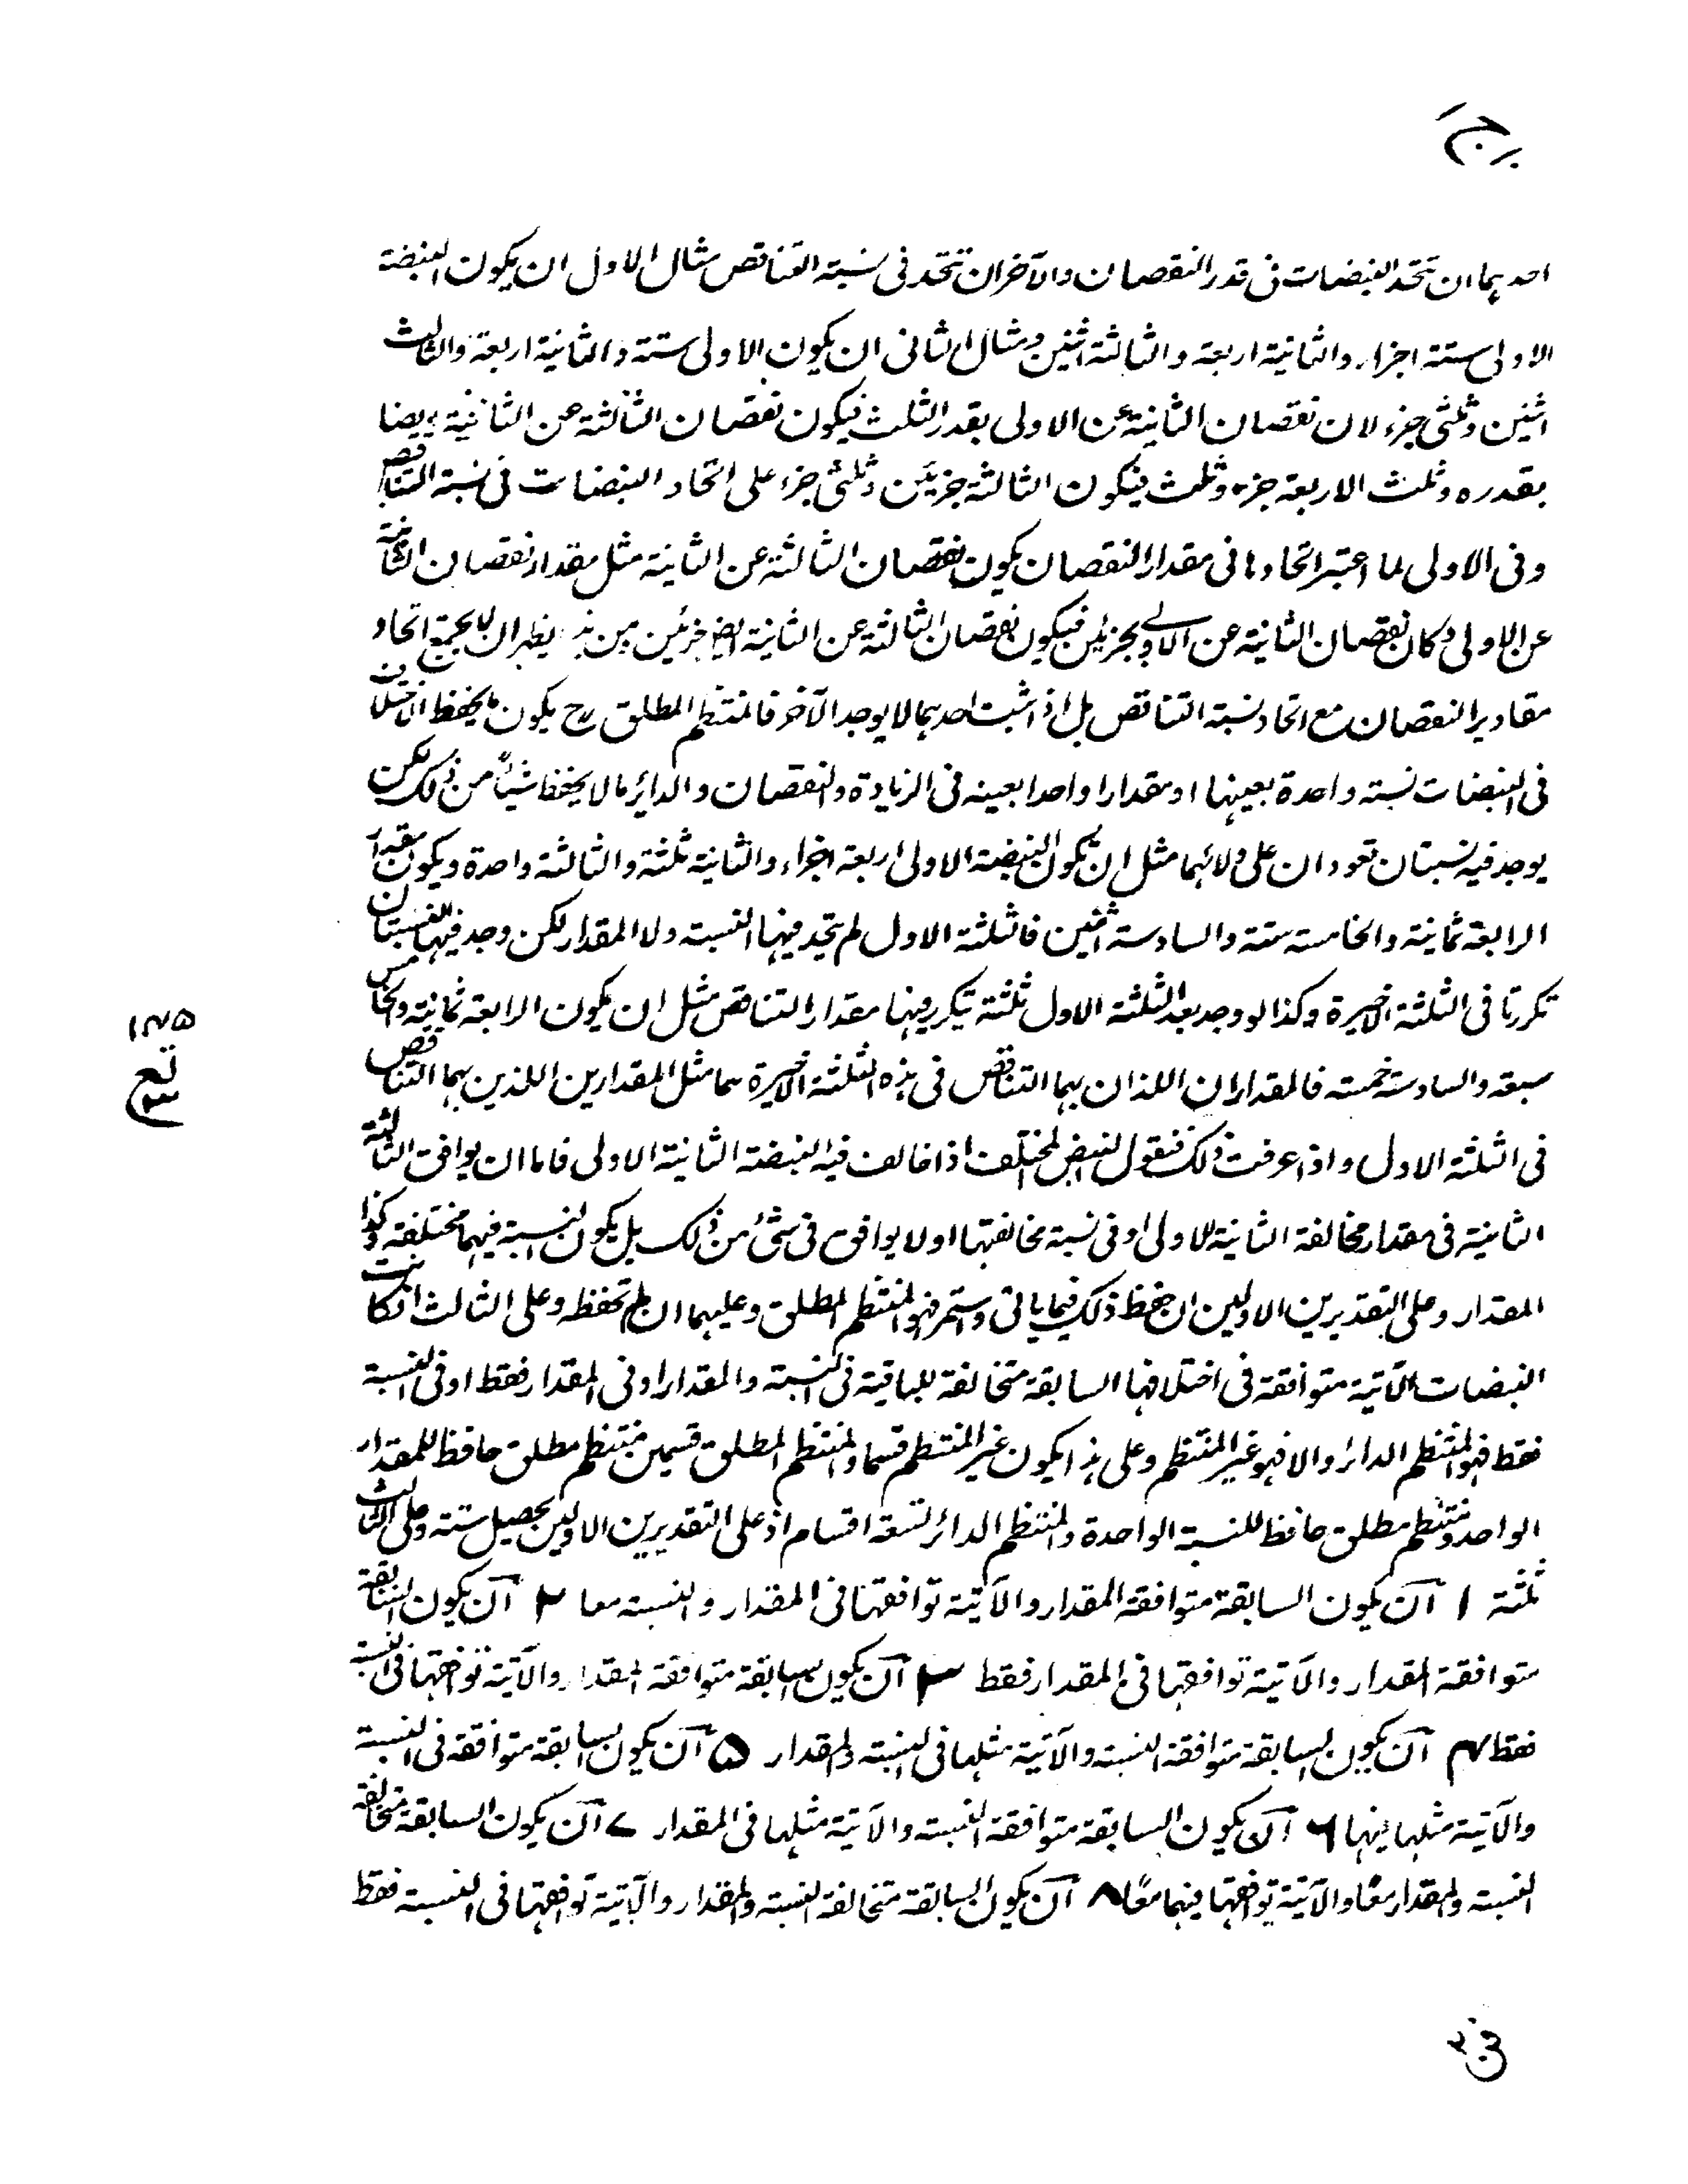 ج
احدیہما ان تتحد النبضات فی قدر النقصان والآخر ان تتحد فی نسبة التناقص مثال الاول ان یکون النبضة
الاولی ستة اجزاء والثانیة اربعة والثالثة اثنین ومثال الثانی ان یکون الاولی ستة والثانیة اربعة والثالث
اثنین وثلثی جزء لان نقصان الثانیة عن الاولی بقدر الثلث فیکون نقصان الثالثة عن الثانیة ایضا
بقدره وثلث الاربعة جزء وثلث فیکون الثالثة جزئین وثلثی جزء علی اتحاد النبضات فی نسبة التناقص
وفی الاولی لما اعتبر اتحادہا فی مقدار النقصان یکون نقصان الثالثة عن الثانیة مثل مقدار نقصان الثانیة
عن الاولی وکان نقصان الثانیة عن الاولی بجزئین فیکون نقصان الثالثة عن الثانیة ایض جزئین ومن ہذا یظہر ان لا یجتمع اتحاد
مقادیر النقصان مع اتحاد نسبة التناقص بل اذا ثبت احدہما لا یوجد الآخر فالمنتظم المطلق ح یکون ما یحفظ الاختلاف
فی النبضات نسبة واحدة بعینہا او مقدارا واحدا بعینه فی الزیادة والنقصان والدائر ما لا یحفظ شیئا من ذلک لکن
یوجد فیه نسبتان تعودان علی ولائہما مثل ان یکون النبضة الاولی اربعة اجزاء والثانیة ثلثة والثالثة واحدة ویکون مقدار
الرابعة ثمانیة والخامسة ستة والسادسة اثنین فالثلثة الاول لم یتحد فیہا النسبة ولا المقدار لکن وجد فیہا النسبتان
تکررتا فی الثلثة الاخیرة وکذا لو وجد بعد الثلثة الاول ثلثة یتکرر فیہا مقدار التناقص مثل ان یکون الرابعة ثمانیة والخامس
سبعة والسادسة خمسة فالمقداران اللذان بہما التناقص فی ہذه الثلثة الاخیرة ہما مثل المقدارین اللذین بہما التناقص
فی الثلثة الاول واذا عرفت ذلک فنقول النبض المختلف اذا خالف فیه النبضة الثانیة الاولی فاما ان یوافق الثالثة
الثانیة فی مقدار مخالفة الثانیة للاولی او فی نسبة مخالفتہا او لا یوافق فی شئ من ذلک بل یکون النسبة فیہما مختلفة وکذا
المقدار وعلی التقدیرین الاولین ان حفظ ذلک فیما یاتی واستمر فہو المنتظم المطلق وعلیہما ان لم یحفظ وعلی الثالث ان کانت
النبضات الآتیة متوافقة فی اختلافہا السابقة متخالفة للباقیة فی النسبة والمقدار او فی المقدار فقط او فی النسبة
فقط فہو المنتظم الدائر والا فہو غیر المنتظم وعلی ہذا یکون غیر المنتظم قسما والمنتظم المطلق قسمین منتظم مطلق حافظ للمقدار
الواحد ومنتظم مطلق حافظ للنسبة الواحدة والمنتظم الدائر تسعة اقسام اذ علی التقدیرین الاولین یحصل ستة وعلی الثالث
ثلثة ۱ آن یکون السابقة متوافقة المقدار والآتیة توافقہا فی المقدار والنسبة معا ۲ آن یکون السابقة
متوافقة المقدار والآتیة توافقہا فی المقدار فقط ۳ آن یکون السابقة متوافقة المقدار والآتیة توافقہا فی النسبة
فقط ۴ آن یکون السابقة متوافقة النسبة والآتیة مثلہا فی النسبة والمقدار ۵ آن یکون السابقة متوافقة فی النسبة
والآتیة مثلہا فیہا ۶ آن یکون السابقة متوافقة النسبة والآتیة مثلہا فی المقدار ۷ آن یکون السابقة متخالفة
النسبة والمقدار معًا والآتیة توافقہا فیہما معًا ۸ آن یکون السابقة متخالفة النسبة والمقدار والآتیة توافقہا فی النسبة فقط
۱۴۵